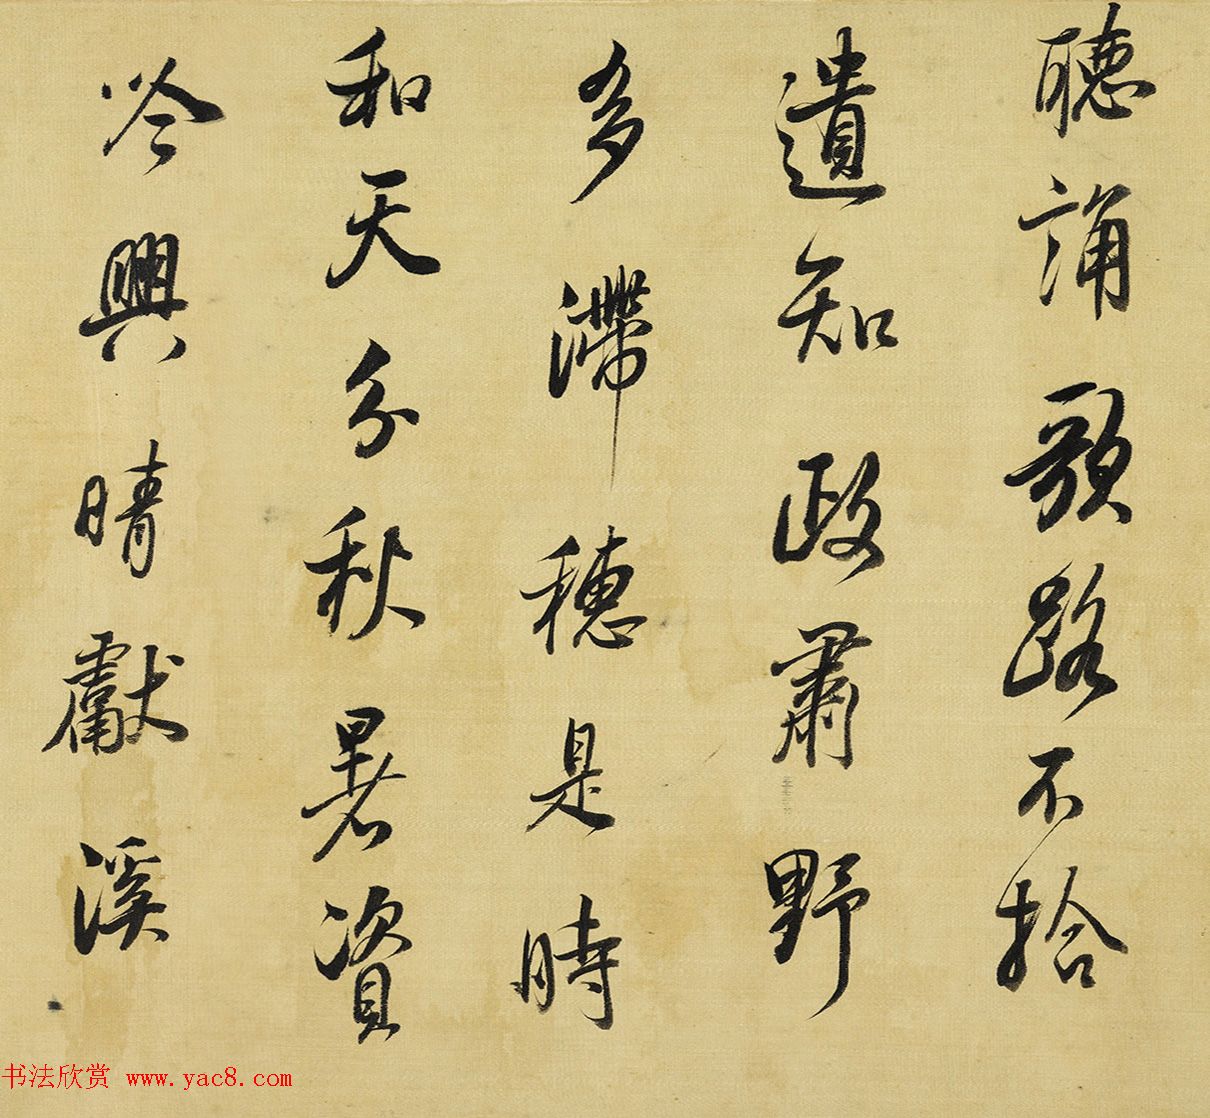 聽誦歌路不拾
遺知政肅野
多滯穗是時
和天分秋暑資
吟興晴獻溪
书法欣赏 www.yac8.com